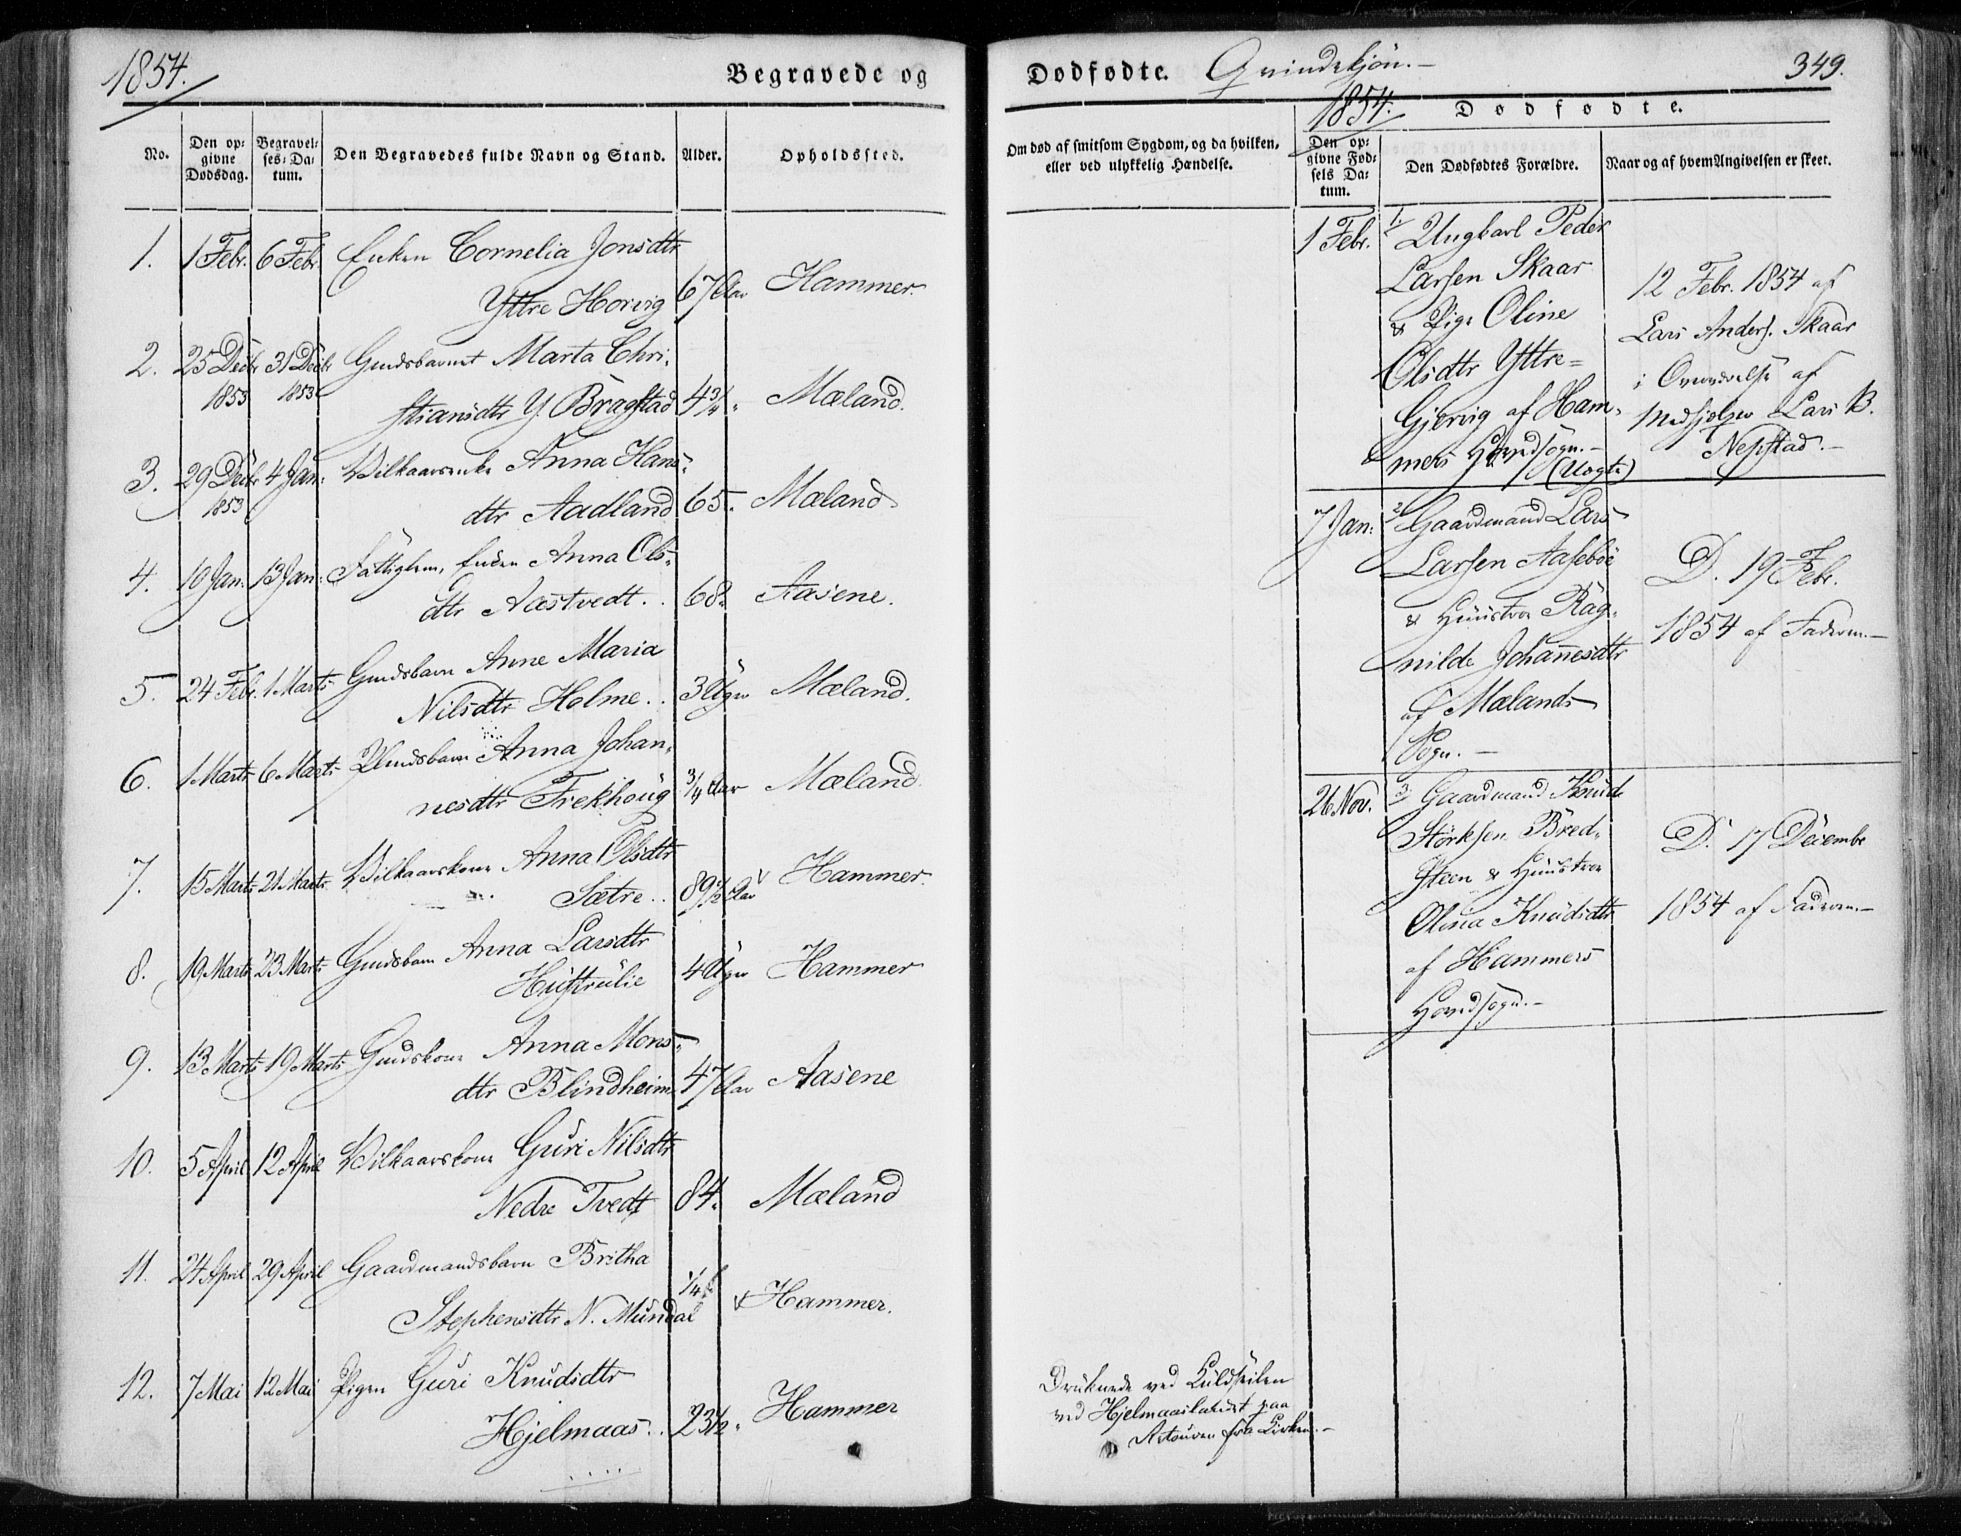 1854.
Begravede og
Dødfødte. Qvindekjøn.
349.
No.
Den opgivne Dødsdag.
Begravelses-Datum.
Den Begravedes fulde Navn og Stand.
Alder.
Opholdssted.
Om død af smitsom Sygdom, og da hvilken,
eller ved ulykkelig Hændelse.
1854. Dødfødte.
Den opgivne Fødsels Datum.
Den Dødfødtes Forældre.
Naar og af hvem Angivelsen er skeet.
1. 1 Febr. 6 Febr. Enken Cornelia Jonsdtr
Yttre Horvig 67 Aar Hammer.
2. 25 Decbr 31 Decbr Gmdsbarnet Marta Chri-
1853 1853 stiansdtr Y. Bragstad 4 3/4. Mæland.
3. 29 Decbr 4 Jan: Vilkaarsenke Anna Hans-
1853 dtr Aadland 65. Mæland
4. 10 Jan: 13 Jan: Fattiglem, Enken Anna Ols-
dtr Aastvedt.. 68. Aasene.
5. 24 Febr. 1 Marts Gmdsbarn Anne Maria
Nilsdtr Holme.. 3 Uger Mæland.
6. 1 Marts 6 Marts Pmdsbarn Anna Johan-
nesdtr Frekhoug 3/4 Aar Mæland.
7. 15 Marts 21 Marts Vilkaarskone Anna Olsdtr
Sætre.. 89 1/2 Aar Hammer.
8. 19 Marts 23 Marts Gmdsbarn Anna Larsdtr
4 Uger Hammer
9. 13 Marts 19 Marts Gmdskone Anna Mons-
dtr Blindheim 47 Aar Aasene
10. 5 April 12 April Vilkaarskone Guri Nilsdtr
Nedre Tvedt 84. Mæland
11. 24 April 29 April Gaardmandsbarn Britha
Stephensdtr N. Mundal 1/4 Hammer.
12. 7 Mai 12 Mai Pigen Guri Knudsdtr
Hjelmaas.. 23 1/2. Hammer
Druknede ved Kuldseilen
ved Hjelmaaslandet paa
Retouren fra Kirken.
1 Febr. 1/ Ungkarl Peder
Larsen Skaar
& Pige Oline
Olsdtr Yttre-
Gjervig af Ham-
mers Hovedsogn.
(Uægte)
12 Febr. 1854 af
Lars Anders. Skaar
i Overværelse af
Medhjelper Lars B.
Nepstad.
7 Jan: 2/ Gaardmand Lars
Larsen Aasebøe
& Huustroe Rag-
nilde Johannesdtr
af Mælands
Sogn.
D. 19 Febr.
1854 af Faderen.
26 Nov. 3/ Gaardmand Knud
Størksen Bred-
steen & Huustroe
Olina Knudsdtr
af Hammers
Hovedsogn.
D. 17 Decembr
1854 af Faderen.